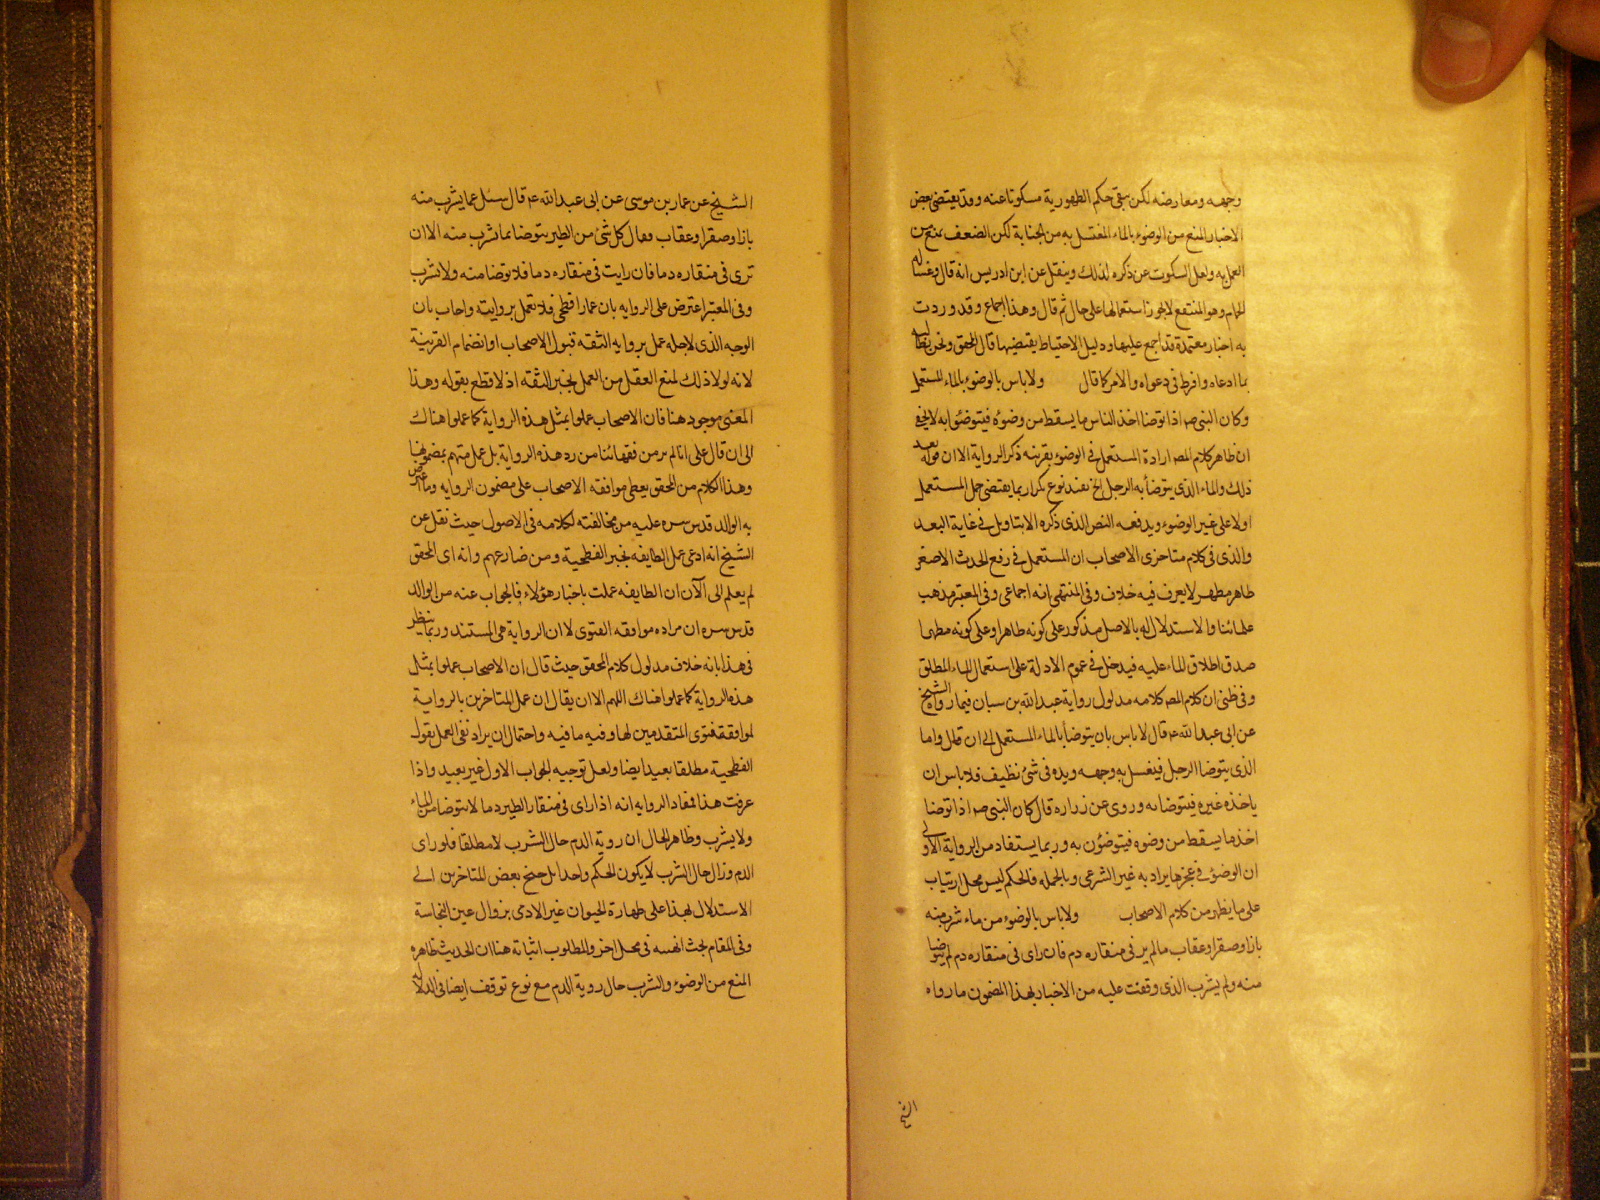 وجهه ومعارضه لكن يبقى حكم الطهورية مسكوتا عنه وقد يقتضى بعض
الاخبار المنع من الوضوء بالماء المغتسل به من الجنابة لكن الضعف يمنع من
العمل به ولعل السكوت عن ذكره لذلك وينقل عن ابن ادريس انه قال وغسالة
الحمام وهو المنتفع لا يجوز استعمالها على حال ثم قال وهذا اجماع وقد وردت
به اخبار معتمدة قد اجمع عليها ودليل الاحتياط يقتضيها قال المحقق ونحن نطالبه
بما ادعاه وافرط فى دعواه والامر كما قال ولا باس بالوضوء بالماء المستعمل
وكان النبى صه اذا توضا اخذ الناس ما يسقط من وضوئه فيتوضئوا به لا يخفى
ان ظاهر كلام المصه ارادة المستعمل فى الوضوء بقرينه ذكر الرواية الا ان قوله بعد
ذلك والماء الذى يتوضأ به الرجل الخ يفيد نوع تكرار بما يقتضى حمل المستعمل
اولا على غير الوضوء ويدفعه النص الذى ذكره الا بتاويل فى غاية البعد
والذى فى كلام متاخرى الاصحاب ان المستعمل فى رفع الحدث الاصغر
طاهر مطهر لا يعرف فيه خلاف وفى المنتهى انه اجماعى وفى المعتبر مذهب
علمائنا والاستدلال له بالاصل مذكور على كونه طاهرا وعلى كونه مطهرا
صدق اطلاق الماء عليه فيدخل فى عموم الادلة على استعمال الماء المطلق
وفى ظنى ان كلام المصه كلامه مدلول رواية عبد الله بن سنان فيما رواه الشيخ
عن ابى عبد الله عه قال لا باس بان يتوضأ بالماء المستعمل الى ان قال واما
الذى يتوضا الرجل فيغسل به وجهه ويده فى شئ نظيف فلا باس ان
ياخذه غيره فيتوضا به وروى عن زراره قال كان النبى صه اذا توضا
اخذ ما يسقط من وضوه فيتوضؤن به وربما يستفاد من الرواية الاولى
ان الوضوء فى عجزها يراد به غير الشرعى وبالجمله فالحكم ليس محل ارتياب
على ما يظهر من كلام الاصحاب ولا باس بالوضوء من ماء شرب منه
باز او صقر او عقاب ما لم ير فى منقاره دم فان راى فى منقاره دم لم يتوضا
منه ولم يشرب الذى وقفت عليه من الاخبار بهذا المضمون ما رواه
الشيخ
الشيخ عن عمار بن موسى عن ابى عبد الله عه قال سئل عما يشرب منه
باز او صقر او عقاب فقال كل شئ من الطير يتوضا بما شرب منه الا ان
ترى فى منقاره دما فان رايت فى منقاره دما فلا توضا منه ولا تشرب
وفى المعتبر اعترض على الروايه بان عمارا فطحى فلا تعمل بروايته واجاب بان
الوجه الذى لاجله عمل بروايه الثقه قبول الاصحاب او انضمام القرينة
لانه لولا ذلك لمنع العقل من العمل بخبر الثقه اذ لا قطع بقوله وهذا
المعنى موجود هنا فان الاصحاب عملوا بمثل هذه الرواية كما عملوا هناك
الى ان قال على انا لم نر من فقهائنا من رد هذه الرواية بل عمل منهم بمضمونها
وهذا الكلام من المحقق يعطى موافقه الاصحاب على مضمون الروايه وما اعترض
به الوالد قدس سره عليه من مخالفته لكلامه فى الاصول حيث نقل عن
الشيخ انه ادعى عمل الطايفه بخبر الفطحية ومن ضارعهم وانه اى المحقق
لم يعلم الى الآن ان الطايفه عملت باخبار هؤلاء فالجواب عنه من الوالد
قدس سره ان مراده موافقه الفتوى لا ان الرواية هى المستند وربما ينظر
فى هذا بانه خلاف مدلول كلام المحقق حيث قال ان الاصحاب عملوا بمثل
هذه الرواية كما عملوا هناك اللهم الا ان يقال ان عمل المتاخرين بالرواية
لموافقة فتوى المتقدمين لها وفيه ما فيه واحتمال ان يراد نفى العمل بقول
الفطحية مطلقا بعيد ايضا ولعل توجيه الجواب الاول غير بعيد واذا
عرفت هذا فمفاد الروايه انه اذا راى فى منقار الطير دما لا يتوضا من الماء
ولا يشرب وظاهر الحال ان روية الدم حال الشرب لا مطلقا فلو راى
الدم وزال حال الشرب لا يكون الحكم واحدا بل جنح بعض المتاخرين الى
الاستدلال بهذا على طهارة الحيوان غير الادمى بزوال عين النجاسة
وفى المقام بحث انهيته فى محل اخر والمطلوب اثباته هنا ان الحديث ظاهره
المنع من الوضوء والشرب حال روية الدم مع نوع توقف ايضا فى الدلالة